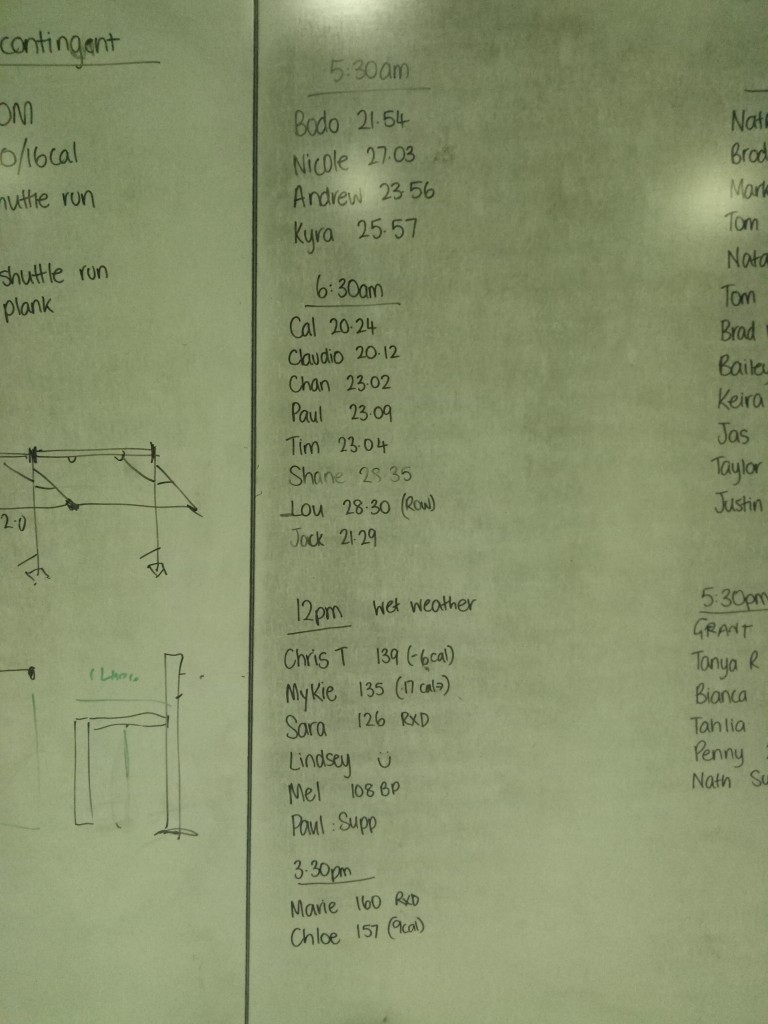 contingent
0/16cal
shuttle run
plank
2.0
5:30am
Bodo 21.54
Nicole 27.03
Andrew 23.56
Kyra 25.57
6:30am
Cal 20.24
Claudio 20.12
Chan 23.02
Paul 23.09
Tim 23.04
Shane 28.35
Lou 28.30 (Row)
Jack 21.29
12pm Wet weather
Chris T 139 (-6cal)
Mykie 135
Sara 126 RXD
Lindsey
Mel 108 BP
Paul : Supp
3.30pm
Marie 160 RXD
Chloe 157 (9cal)
Brad
Tom
Tom
Brad
Bailey
Keira
Jas
Taylor
Justin
5:30pm
GRANT
Tanya R
Bianca
Tahlia
Penny
Nath